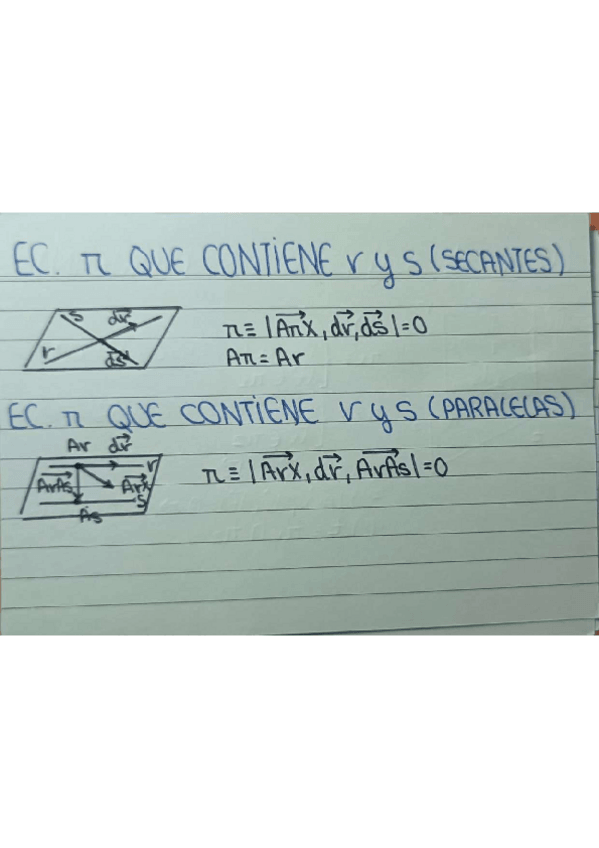 EC. π QUE CONTIENE r y s (SECANTES)
s dr
r ds
π ≡ |AπX, dr, ds| = 0
Aπ = Ar
EC. π QUE CONTIENE r y s (PARALELAS)
Ar dr
r
ArAs ArX
s
As
π ≡ |ArX, dr, ArAs| = 0